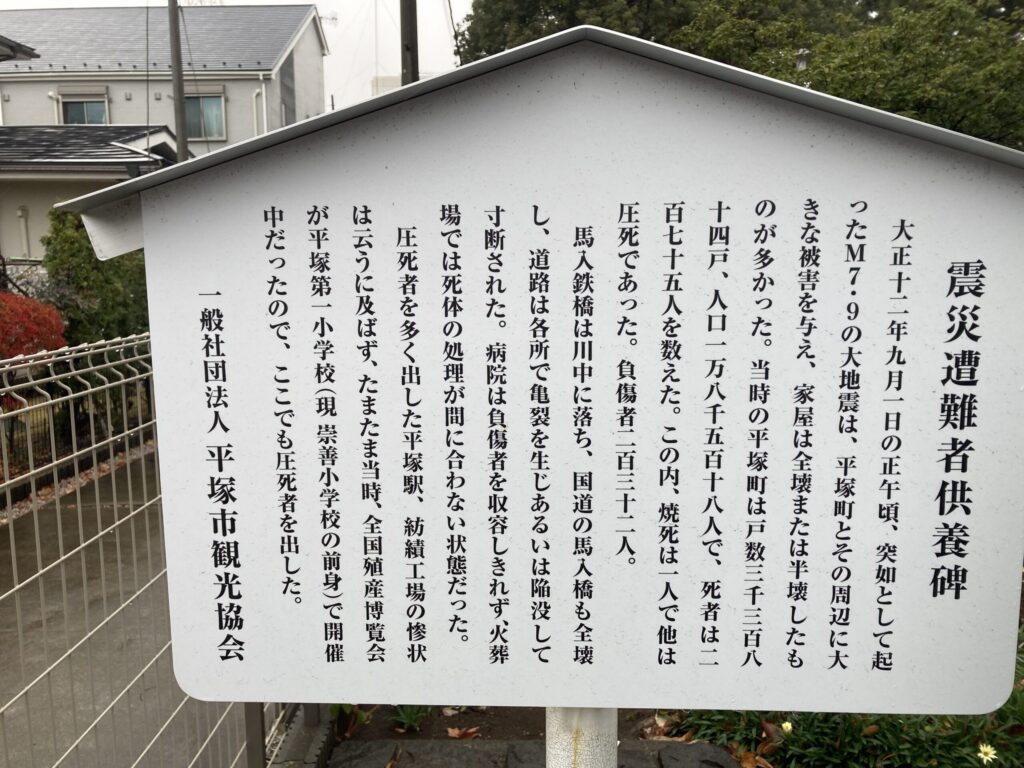 震災遭難者供養碑
大正十二年九月一日の正午頃、突如として起
ったM7・9の大地震は、平塚町とその周辺に大
きな被害を与え、家屋は全壊または半壊したも
のが多かった。当時の平塚町は戸数三千三百八
十四戸、人口一万八千五百十八人で、死者は二
百七十五人を数えた。この内、焼死は一人で他は
圧死であった。負傷者二百三十二人。
馬入鉄橋は川中に落ち、国道の馬入橋も全壊
し、道路は各所で亀裂を生じあるいは陥没して
寸断された。病院は負傷者を収容しきれず、火葬
場では死体の処理が間に合わない状態だった。
圧死者を多く出した平塚駅、紡績工場の惨状
は云うに及ばず、たまたま当時、全国殖産博覧会
が平塚第一小学校(現 崇善小学校の前身)で開催
中だったので、ここでも圧死者を出した。
一般社団法人 平塚市観光協会